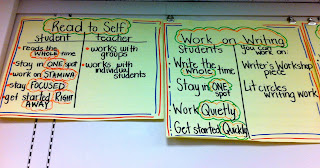 Read to Self
student
teacher
reads the WHOLE time
stay in ONE spot
work on STAMINA
stay FOCUSED
get started RIGHT
AWAY
works with
groups
works with
individual
students
Work on Writing
Students
you can
work on
Write the
whole time
Stay in ONE
spot
Work Quietly
Get started Quickly
Writer's Workshop
piece
Lit circles
writing work